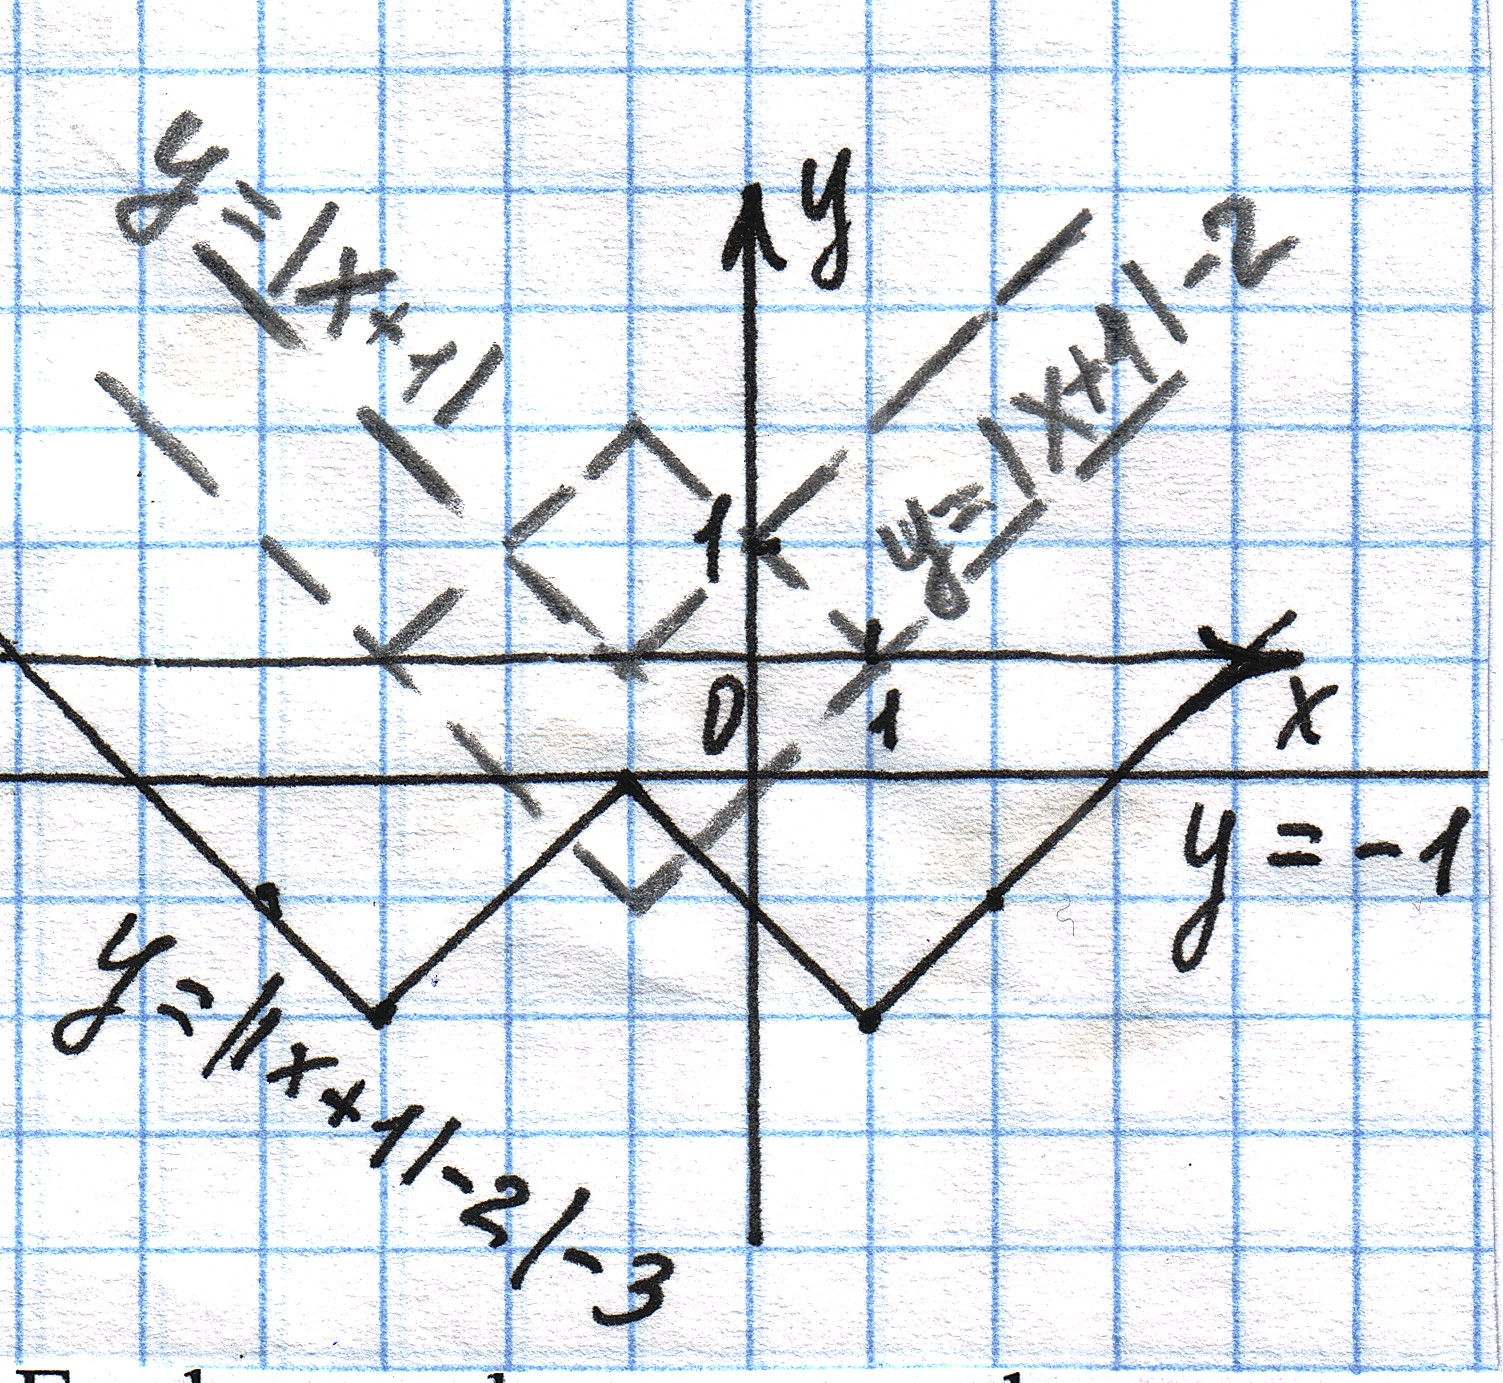 y = |x+1|
y
y = |x+1| - 2
1
0
1
x
y = -1
y = ||x+1|-2|-3